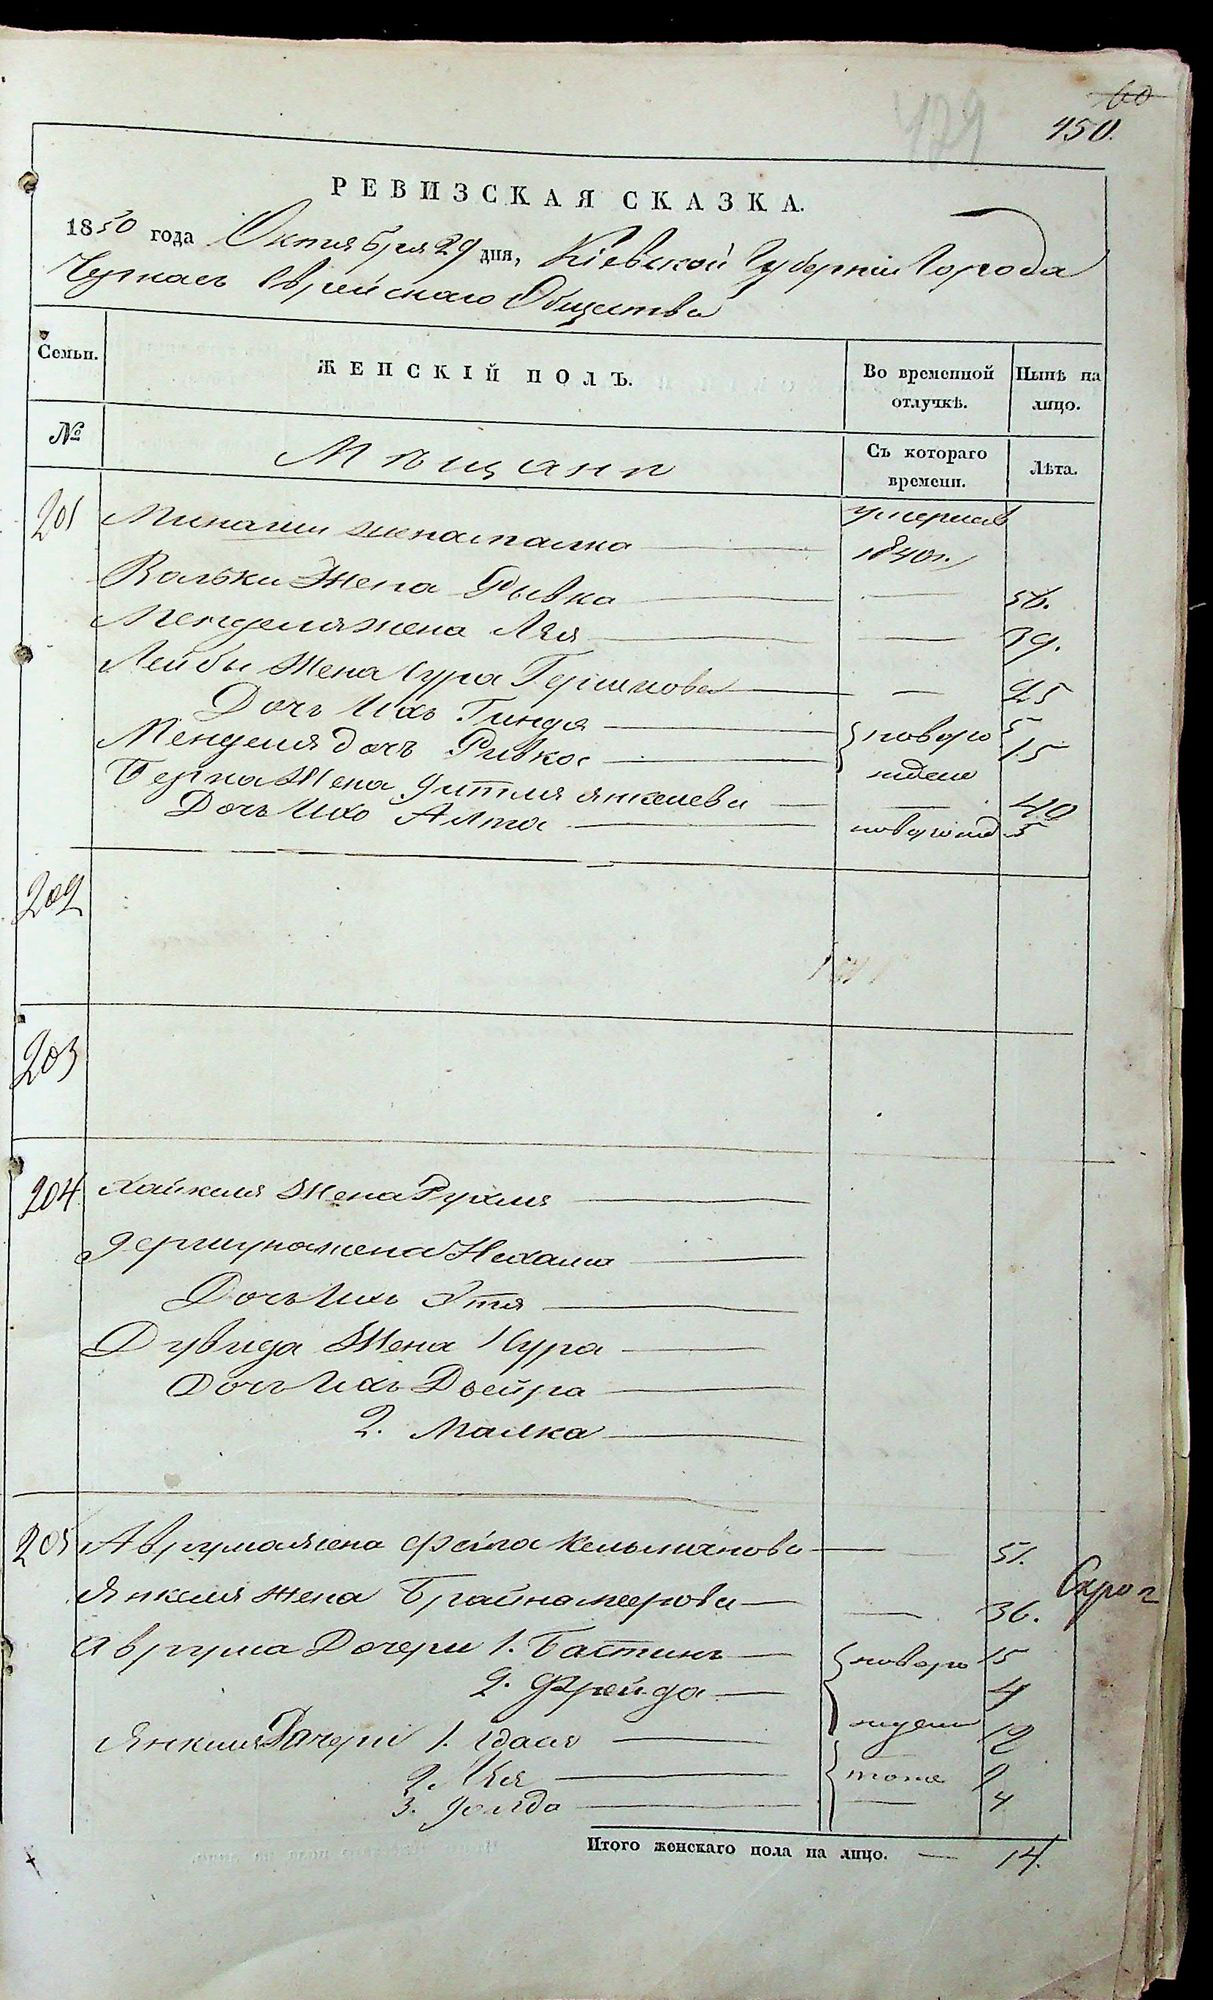 60
450.
429
РЕВИЗСКАЯ СКАЗКА.
1850 года Октября 29 дня, Кіевской Губерніи Города
Черкасъ Еврейскаго Общества
Семьи.
ЖЕНСКІЙ ПОЛЪ.
Во временной отлучкѣ.
Нынѣ на лицо.
№
Мѣщане
Съ котораго времени.
Лѣта.
201
жена Малка — умерла 1840 г.
Вольки Жена Рывка — — 56.
Менделя жена Лея — — 39.
Лейбы Жена Сура Гершкова — — 25
Дочь Ихъ Гиндя — 5
Менделя дочь Ривка — новоро ждене 15
Берка Жена Гитля Янкелева — — 40
Дочь Ихъ Алта — новорожд 5
202
203
204 Хайкеля Жена Рухля —
Гершуна жена Нехама —
Дочь Ихъ Этя —
Дувида Жена Сура —
Дочь Ихъ Двейра —
2. Малка —
205 Аврума жена Фейга Кельманова — — 51.
Янкеля жена Брайна Меерова — — 36.
Скро г
Аврума Дочери 1. Бастинъ — новоро 15
2. Фрейда — 4
ждени
Янкеля Дочери 1. Хася — 12
2. Лея — тоже 9
3. Голда — — 4
Итого женскаго пола на лицо. — 14.